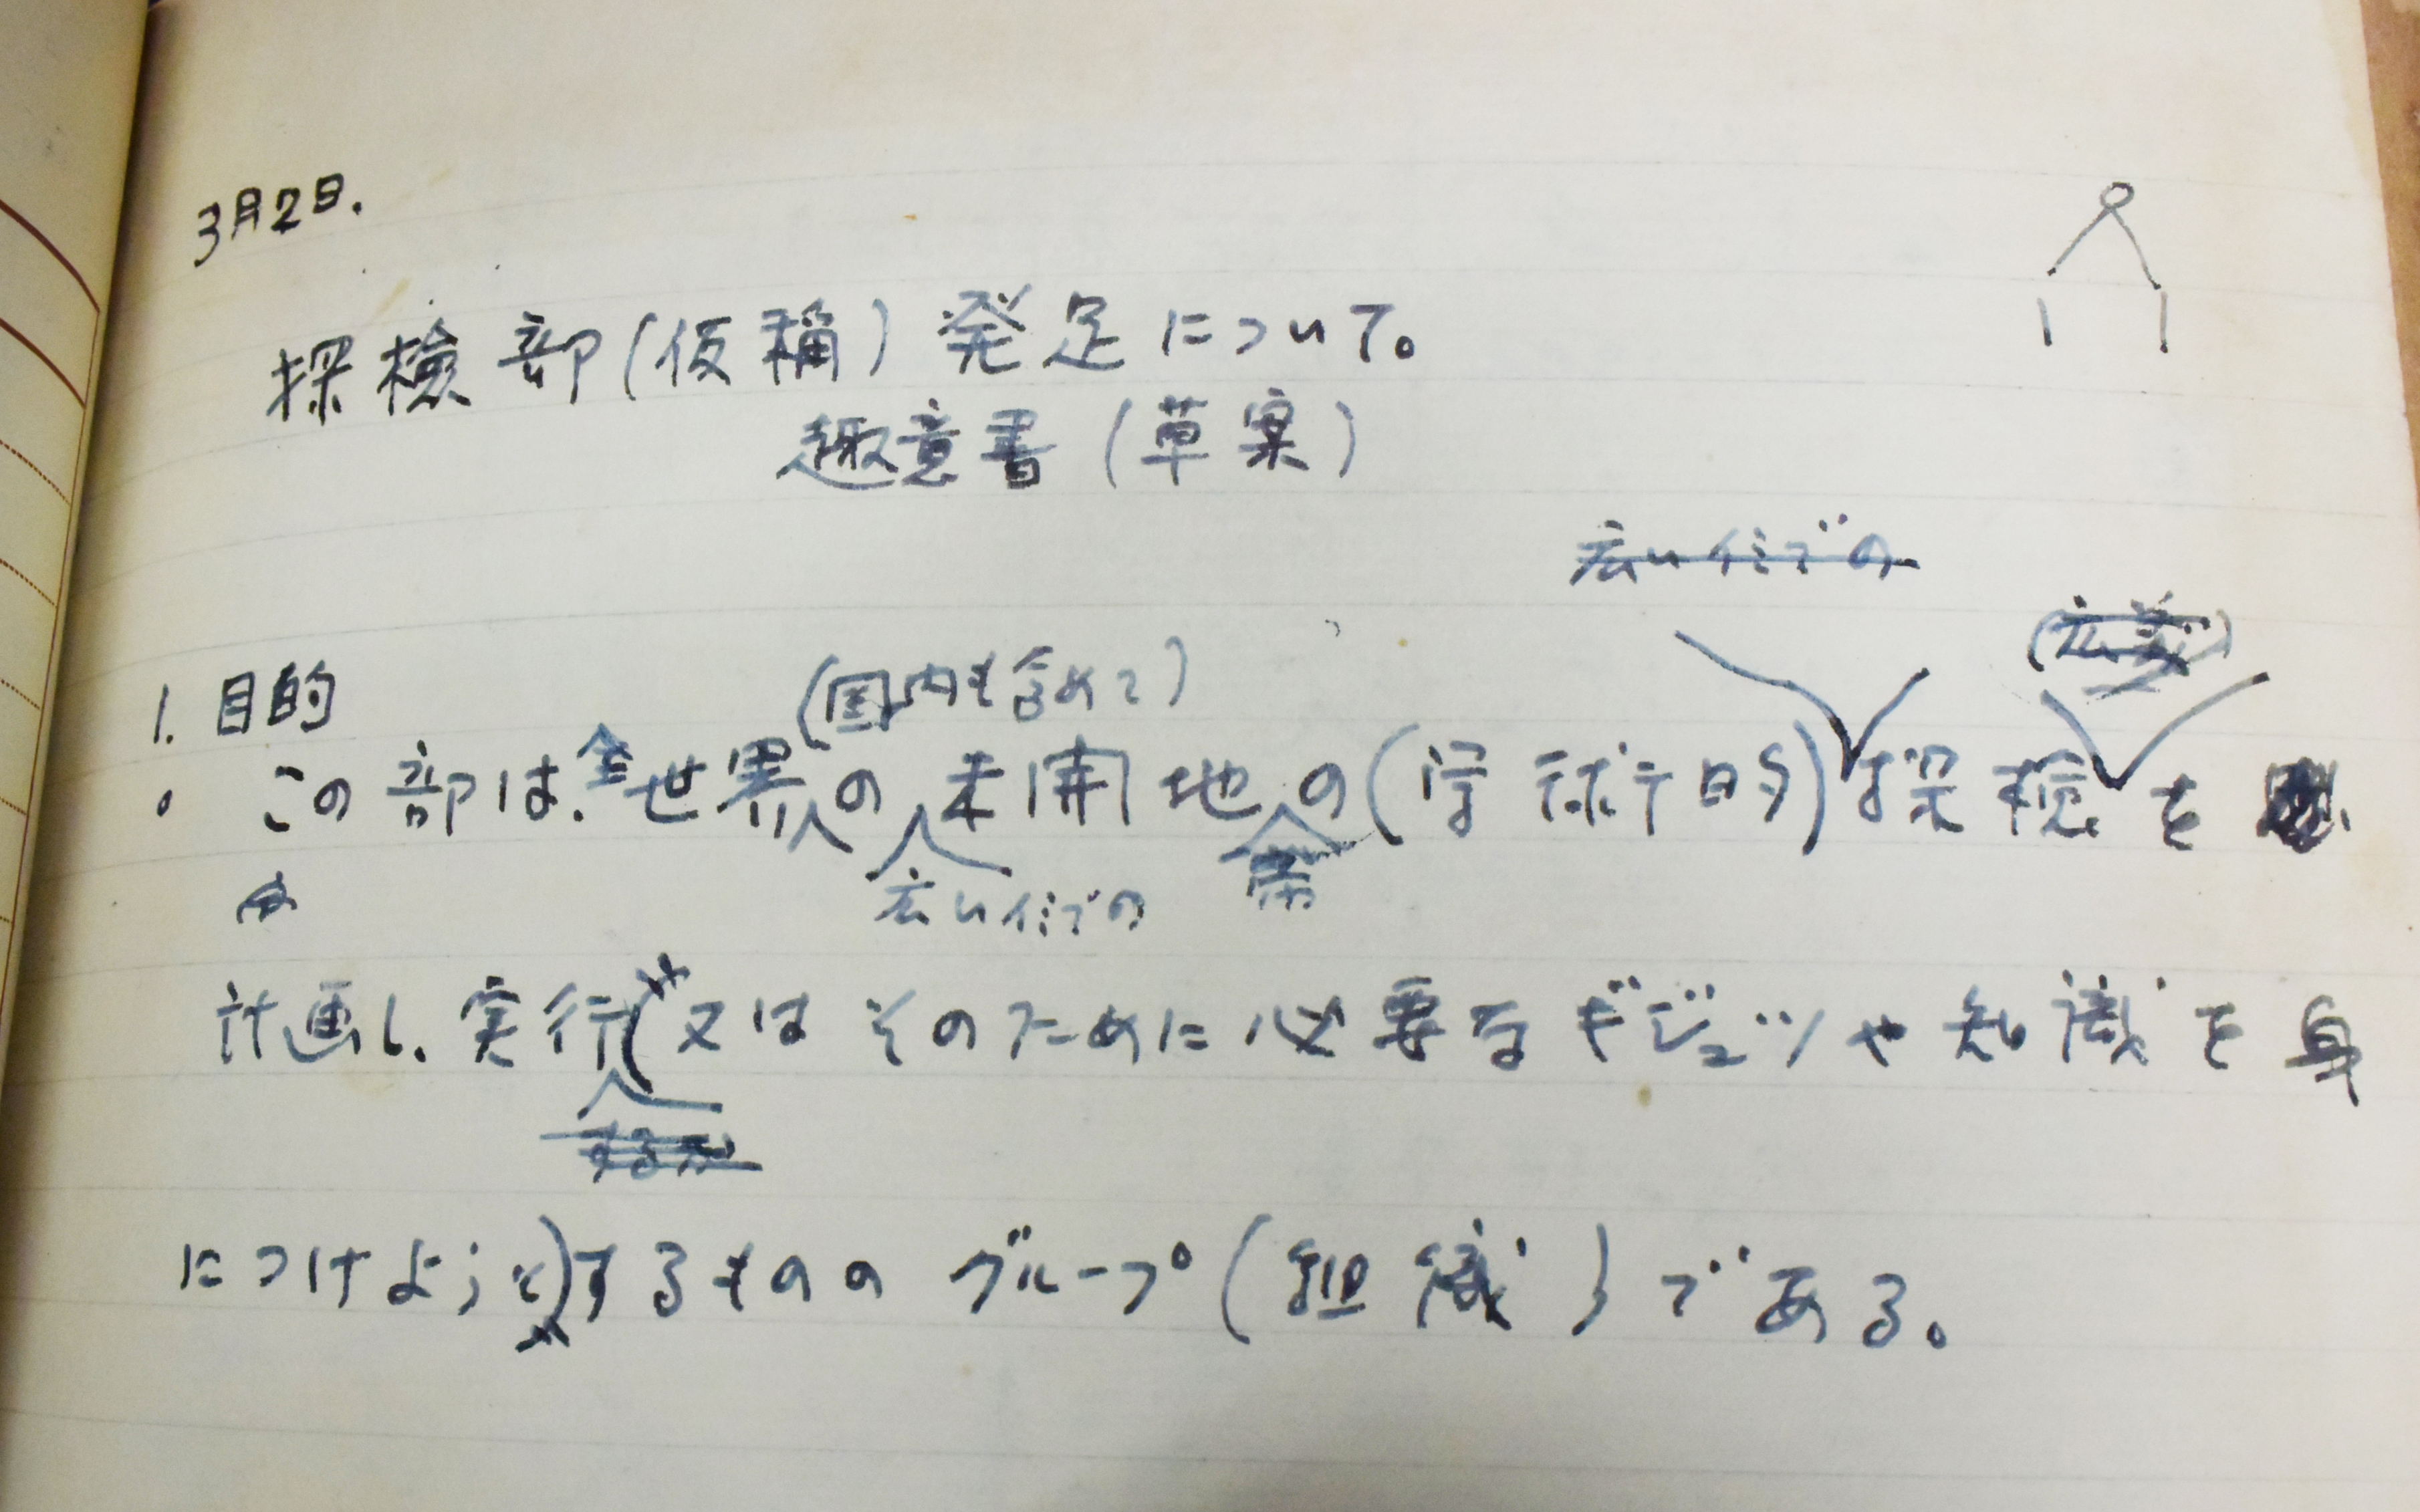 3月2日.
探検部(仮称)発足について。
趣意書(草案)
広い イミでの
(広義)
1. 目的
(国内も含めて)
この部は.全世界の未開地の(学術的)探検を
広いイミでの
計画し.実行(又はそのために必要なギジュツや知識を身
するか
につけようと)するもののグループ(組織)である。